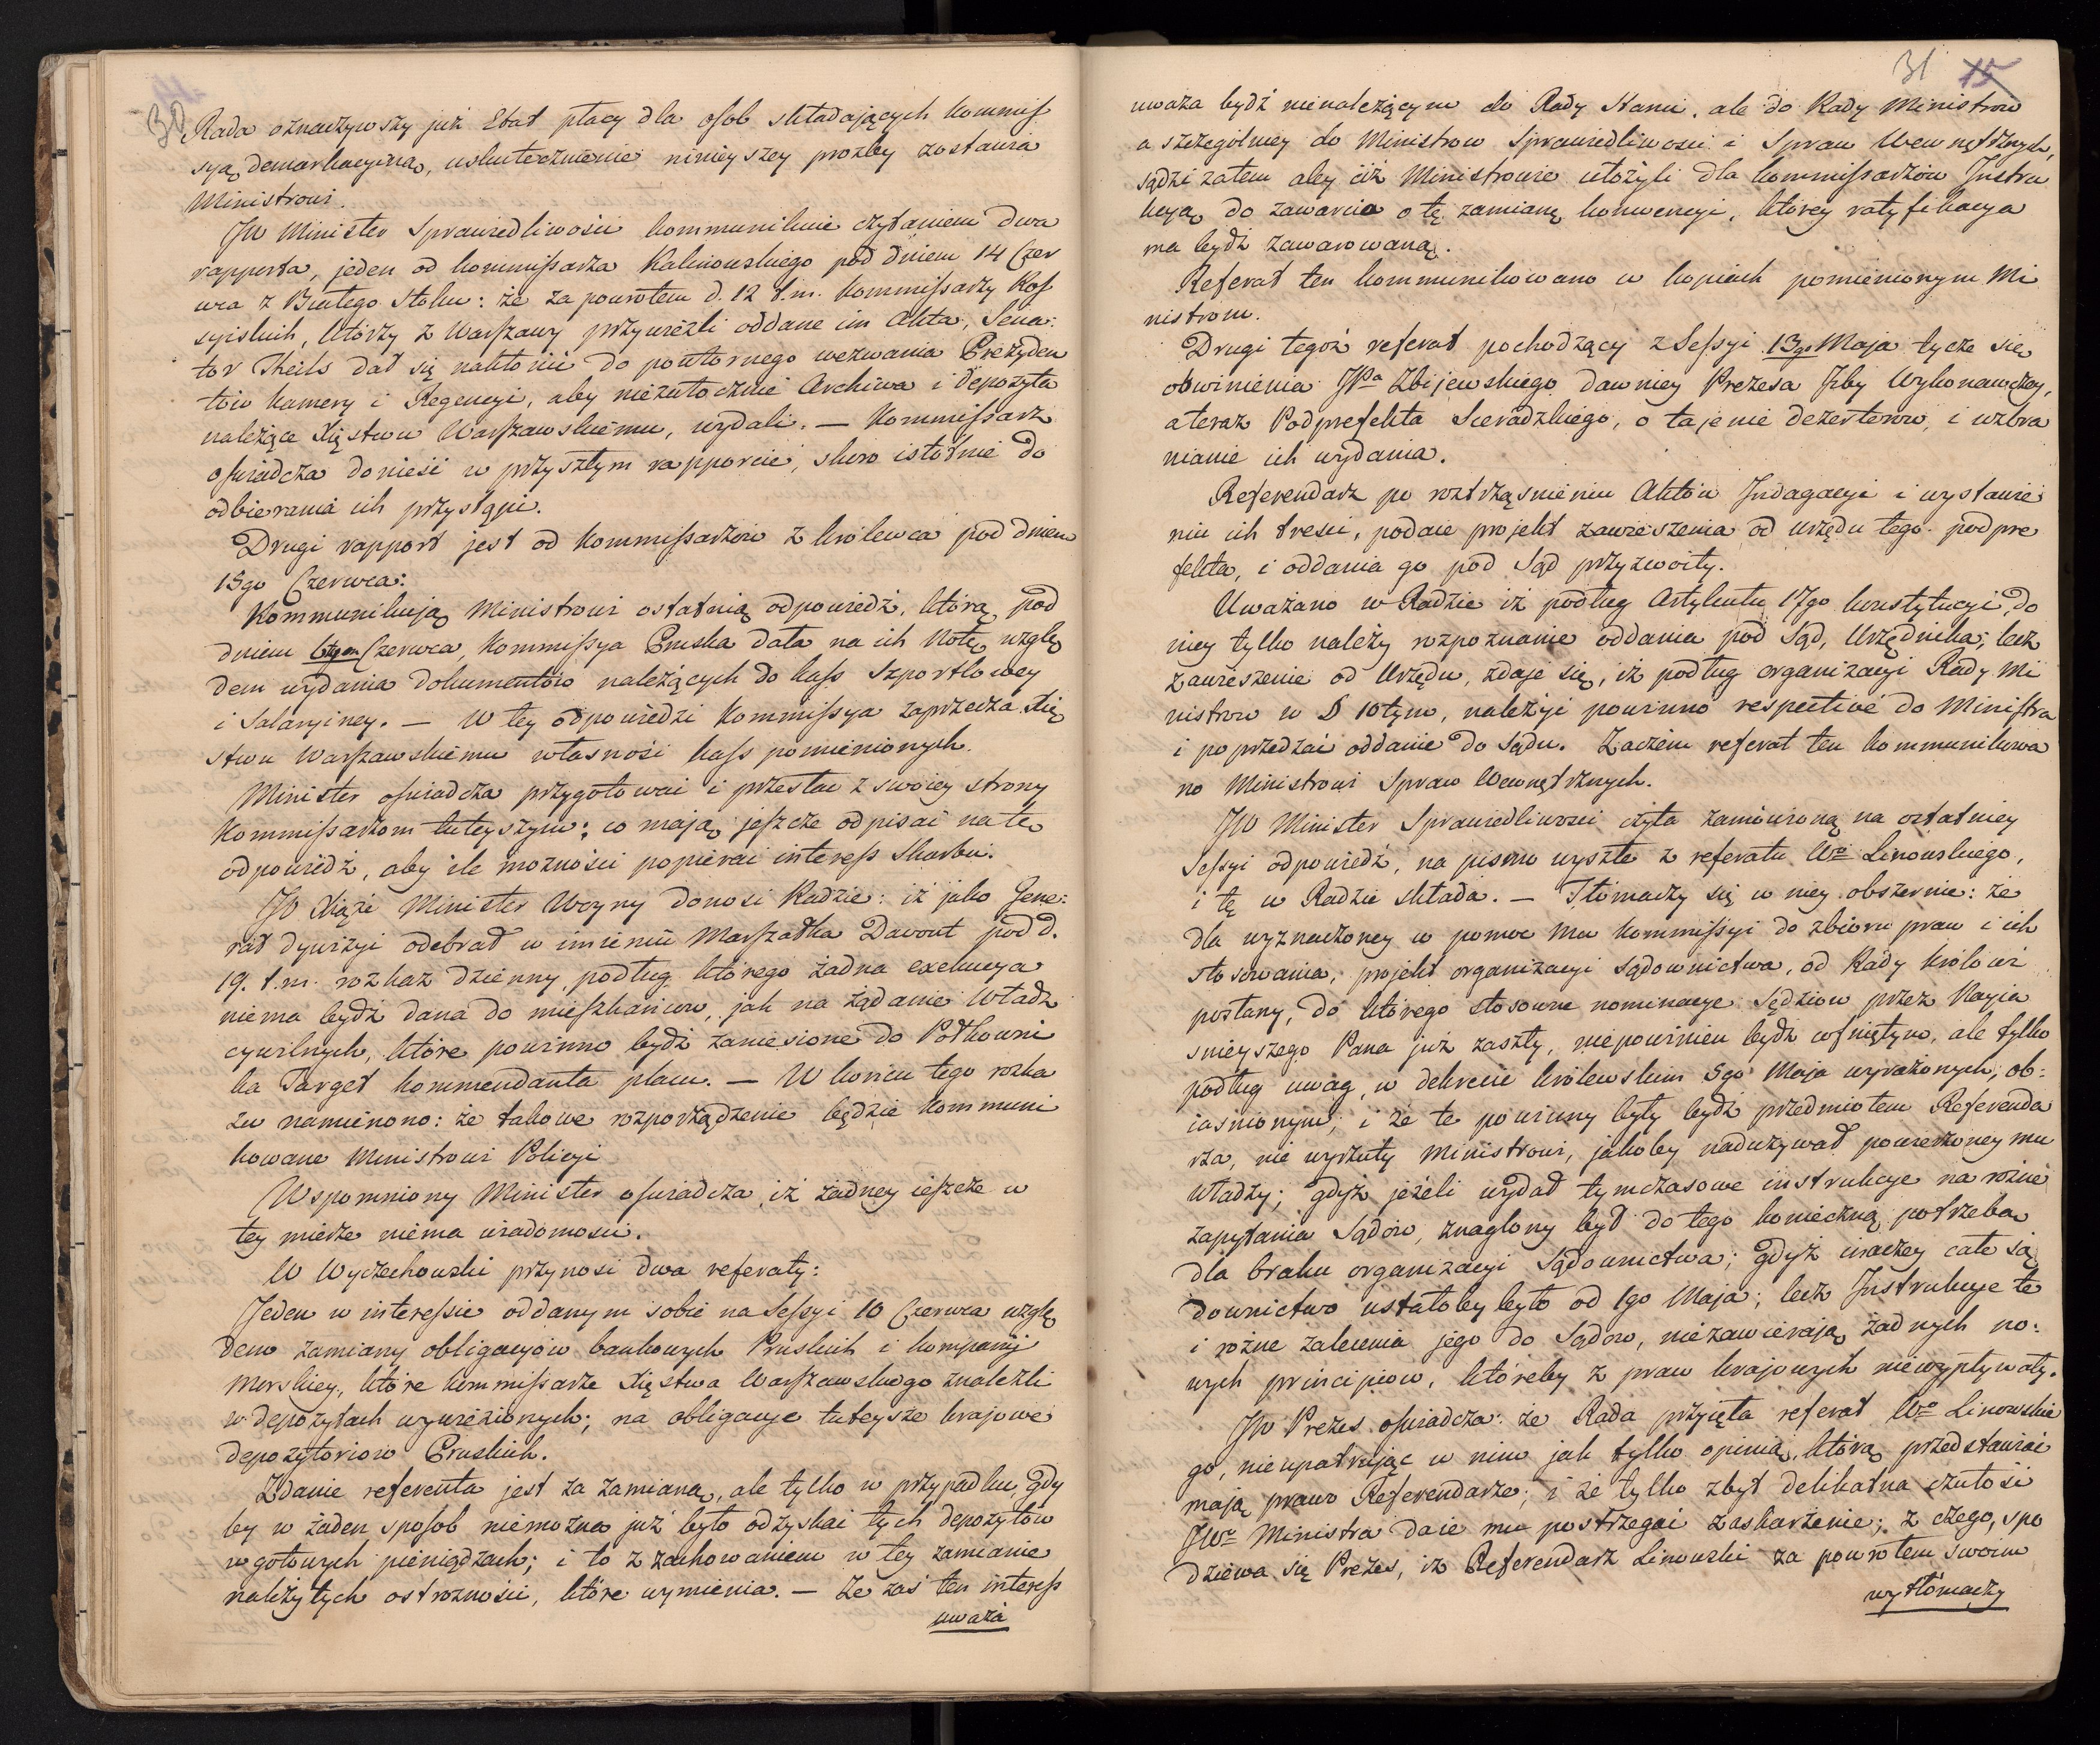 30
Rada oznaczywszy już Etat płacy dla osob składających Kommis
syą demarkacyiną, uskutecznienie ninieyszey prozby zostawia
Ministrowi.
JW Minister Sprawiedliwości kommunikuie czytaniem dwa
rapporta, jeden od kommissarza Kalinowskiego pod dniem 14 Czer
wca z Białego Stoku: że za powrotem d. 12 t.m. kommissarzy Ros
syiskich, którzy z Warszawy przywieźli oddane im Akta, Sena:
tor Theils dał się nakłonić do powtornego wezwania Prezyden
tów Kamery i Regencyi, aby niezwłocznie Archiwa i depozyta
należące Xięstwu Warszawskiemu, wydali. — Kommissarz
oświadcza donieść w przyszłym rapporcie, skoro istotnie do
odbierania ich przystąpi.
Drugi rapport jest od Kommissarzów z Królewca pod dniem
15go Czerwca:
Kommunikują Ministrowi ostatnią odpowiedź, którą pod
dniem Czerwca, Kommissya Pruska dała na ich Notę wzglę
dem wydania dokumentów należących do kass Szportlowey
i Salaryiney. — W tey odpowiedzi Kommissya zaprzecza Xię
stwu Warszawskiemu własności kass pomienionych.
Minister oświadcza przygotować i przesłać z swoiey strony
Kommissarzom tuteyszym; co mają jeszcze odpisać na tę
odpowiedź, aby ile możności popierać interess Skarbu.
JO Xiąże Minister Woyny donosi Radzie: iż jako Gene:
rał dywizyi odebrał w imieniu Marszałka Davout pod d.
19. t.m. rozkaz dzienny, podług którego żadna exekucya
niema bydź dana do mieszkańców, jak na żądanie Władz
cywilnych, które powinno bydź zaniesione do Półkowni
ka Sarget kommendanta placu. — W końcu tego rozka
zu namieniono: że takowe rozporządzenie będzie kommuni
kowane Ministrowi Policyi
Wspomniony Minister oświadcza, iż żadney ieszcze w
tey mierze niema wiadomości.
W Wyczechowski przynosi dwa referaty:
Jeden w interessie oddanym sobie na Sessyi 10 Czerwca wzglę
dem zamiany obligacyiów bankowych Pruskich i kompanij
Morskiey, które kommissarze Xięstwa Warszawskiego znaleźli
w depozytach wywiezionych; na obligacye tuteysze krajowe
depozytoriow Pruskich.
Zdanie referenta jest za zamianą, ale tylko w przypadku, gdy
by w żaden sposob niemożna już było odzyskać tych depozytów
w gotowych pieniądzach; i to z zachowaniem w tey zamianie
należytych ostrożności, które wymienia. — Że zaś ten interess
uważa
31 15
uważa bydź nienależącym do Rady Stanu, ale do Rady Ministrow
a szczególniey do Ministrow Sprawiedliwości i Spraw Wewnętrznych,
sądzi zatem aby ciż Ministrowie ułożyli dla kommissarzów Instru
kcyą do zawarcia o tę zamianę konwencyi, którey ratyfikacya
ma bydź zawarowaną.
Referat ten kommunikowano w kopiach pomienionym Mi
nistrom.
Drugi tegoż referat pochodzący z Sessyi 13go Maja tycze się
obwinienia JPa Zbijewskiego dawniey Prezesa Izby Wykonawczey,
a teraz Podprefekta Sieradzkiego, o tajenie dezerterów, i wzbra
nianie ich wydania.
Referendarz po roztrząśnieniu Aktów Indagacyi i wystawie
niu ich treści, podaie projekt zawieszenia od urzędu tego podpre
fekta, i oddania go pod Sąd przyzwoity.
Uważano w Radzie iż podług Artykułu 17go konstytucyi, do
niey tylko należy rozpoznanie oddania pod Sąd, Urzędnika; lecz
zawieszenie od Urzędu, zdaje się, iż podług organizacyi Rady Mi
nistrow w § 10tym, należyć powinno respective do Ministra
i poprzedzać oddanie do Sądu. Zaczém referat ten kommunikowa
no Ministrowi Spraw Wewnętrznych.
JW Minister Sprawiedliwości czyta zamówioną na ostatniey
Sessyi odpowiedź, na pismo wyszłe z referatu Wo Linowskiego,
i tę w Radzie składa. — Tłómaczy się w niey obszernie: że
dla wyznaczoney w pomoc mu kommissyi do zbioru praw i ich
stosowania, projekt organizacyi sądownictwa, od Rady królowi
posłany, do którego stosowne nominacye Sędziow przez Nayia
śnieyszego Pana już zaszły, niepowinien bydź cofniętym, ale tylko
podług uwag, w dekrecie królewskim 5go Maja wyrażonych, ob:
iaśnionym; i że te powinny były bydź przedmiotem Referenda
rza, nie wyrzuty Ministrowi, jakoby nadużywał powierzoney mu
władzy; gdyż jeżeli wydał tymczasowe instrukcye na różne
zapytania Sądów, znaglony był do tego konieczną potrzebą
dla braku organizacyi Sądownictwa; gdyż inaczey całe są
downictwo ustałoby było od 1go Maja; lecz Instrukcye te
i rożne zalecenia jego do Sądow, niezawierają żadnych no:
wych principiow, któreby z praw krajowych niewypływały.
JW Prezes oświadcza: że Rada przyięła referat Wo Linowskie
go, nieupatrując w nim jak tylko opinią, którą przedstawiać
mają prawo Referendarze; i że tylko zbyt delikatna czułość
JWo Ministra daie mu postrzegać zaskarżenie; z czego, spo
dziewa się Prezes, iż Referendarz Linowski za powrotem swoim
wytłómaczy